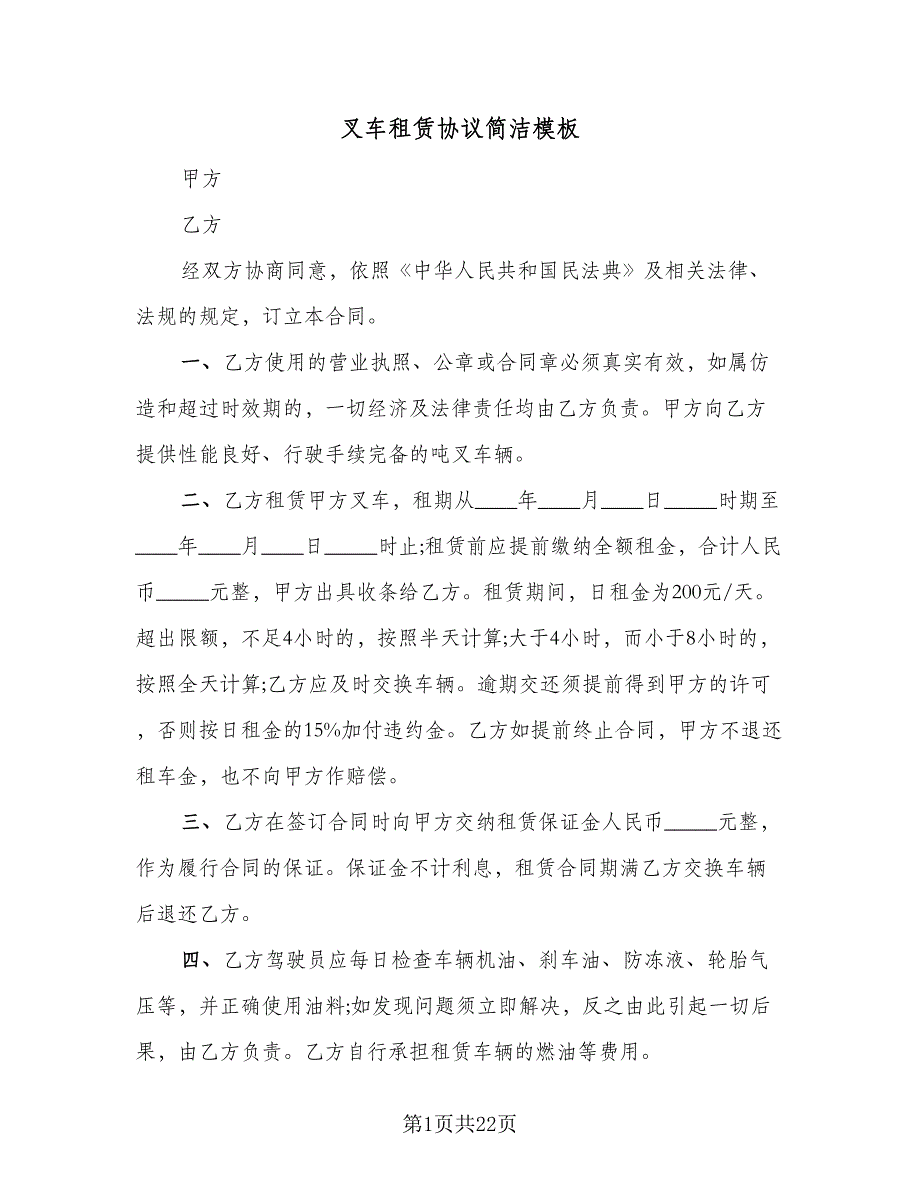 叉车租赁协议简洁模板
甲方
乙方
经双方协商同意，依照《中华人民共和国民法典》及相关法律、
法规的规定，订立本合同。
一、乙方使用的营业执照、公章或合同章必须真实有效，如属仿
造和超过时效期的，一切经济及法律责任均由乙方负责。甲方向乙方
提供性能良好、行驶手续完备的吨叉车辆。
二、乙方租赁甲方叉车，租期从____年____月____日_____时期至
____年____月____日_____时止;租赁前应提前缴纳全额租金，合计人民
币_____元整，甲方出具收条给乙方。租赁期间，日租金为200元/天。
超出限额，不足4小时的，按照半天计算;大于4小时，而小于8小时的，
按照全天计算;乙方应及时交换车辆。逾期交还须提前得到甲方的许可
，否则按日租金的15%加付违约金。乙方如提前终止合同，甲方不退还
租车金，也不向甲方作赔偿。
三、乙方在签订合同时向甲方交纳租赁保证金人民币_____元整，
作为履行合同的保证。保证金不计利息，租赁合同期满乙方交换车辆
后退还乙方。
四、乙方驾驶员应每日检查车辆机油、刹车油、防冻液、轮胎气
压等，并正确使用油料;如发现问题须立即解决，反之由此引起一切后
果，由乙方负责。乙方自行承担租赁车辆的燃油等费用。
第1页共22页